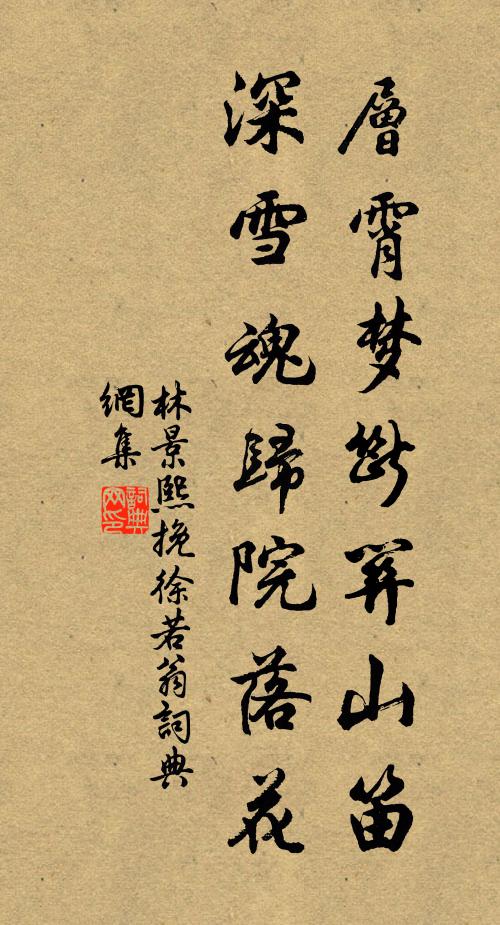 層霄梦斷關山笛
深雪魂歸院落花
林景熙挽徐若翁詞典
網集
詞典
网印